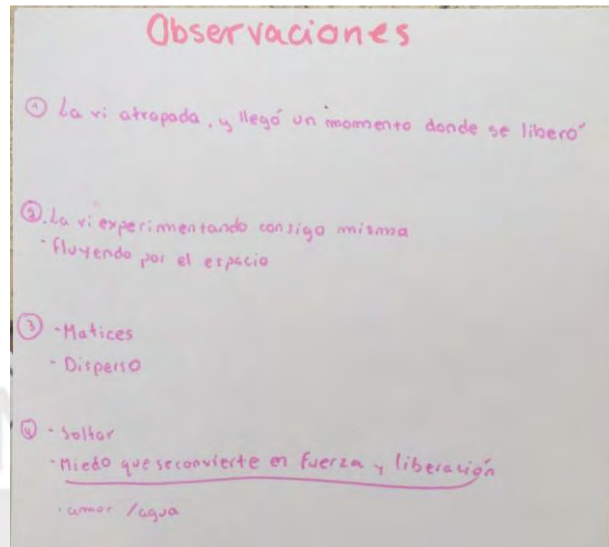 Observaciones
① La vi atrapada, y llegó un momento donde se liberó
②. La vi experimentando consigo misma
- fluyendo por el espacio
③ - Matices
- Disperso
④ - Soltar
- Miedo que se convierte en fuerza y liberación
- amor / agua